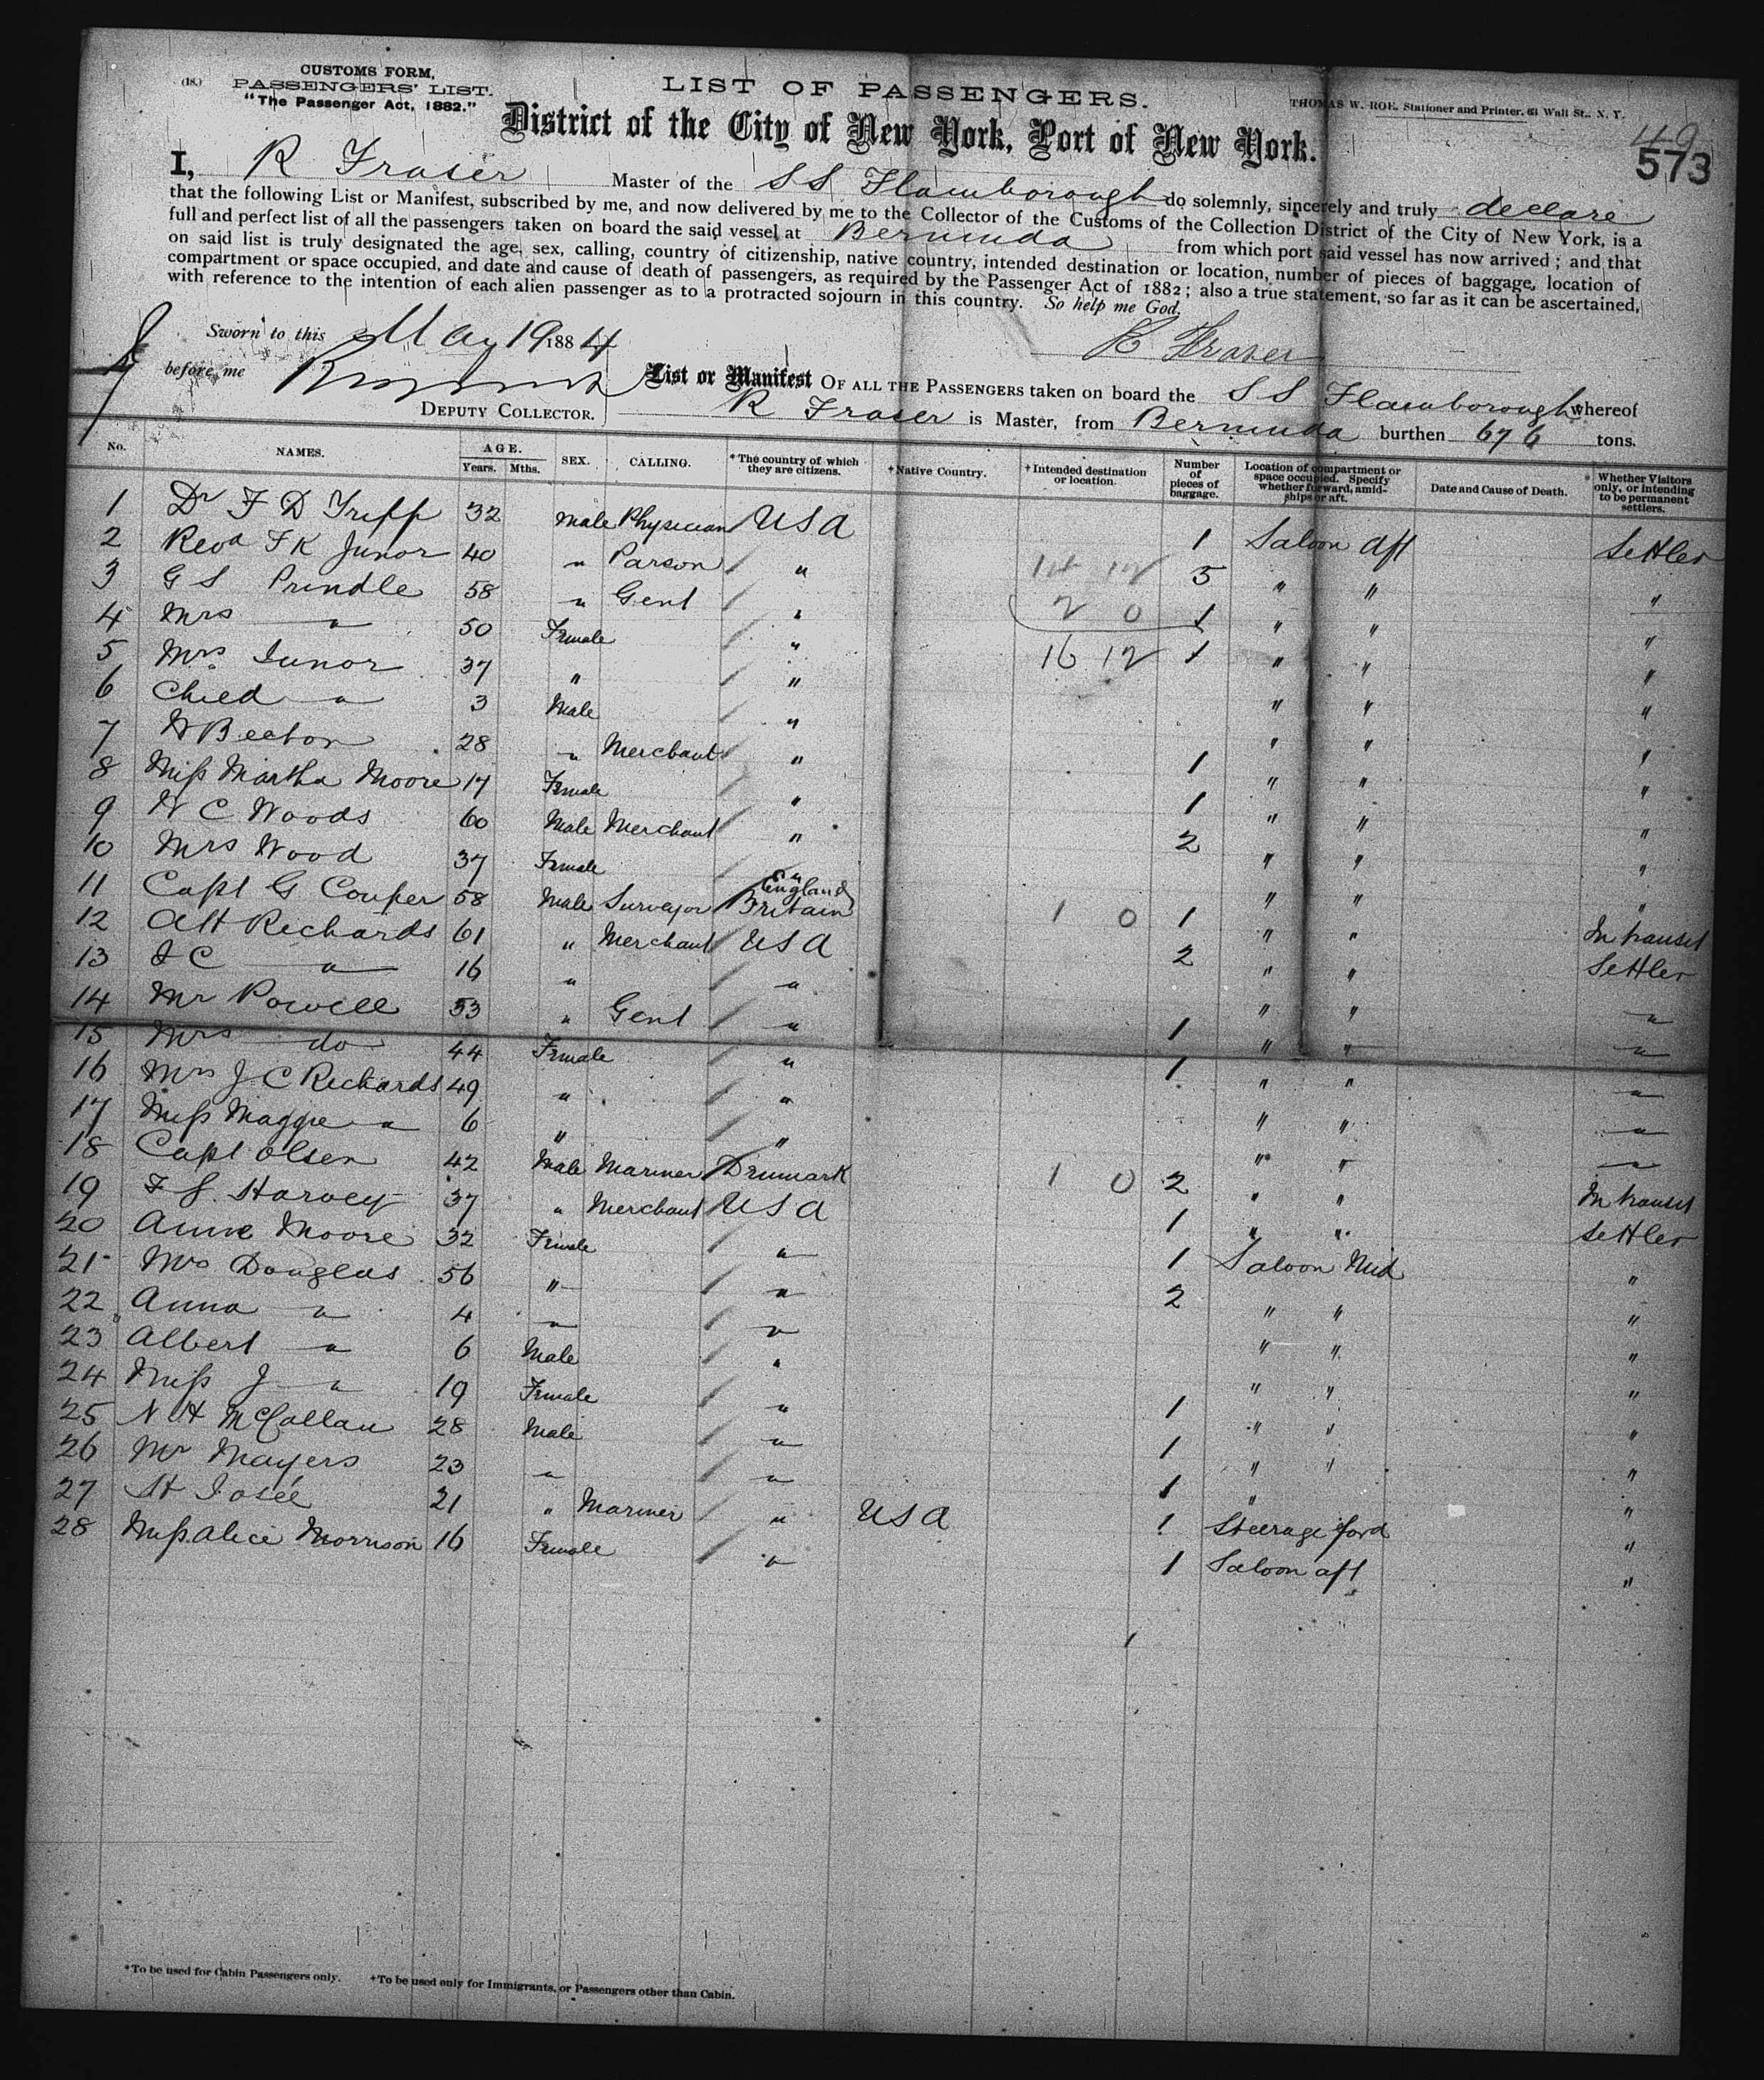 (18.)
CUSTOMS FORM,
PASSENGERS' LIST.
"The Passenger Act, 1882."
LIST OF PASSENGERS.
THOMAS W. ROE, Stationer and Printer, 61 Wall St., N. Y.
District of the City of New York, Port of New York.
49
573
I, R Fraser Master of the SS Flamborough do solemnly, sincerely and truly declare
that the following List or Manifest, subscribed by me, and now delivered by me to the Collector of the Customs of the Collection District of the City of New York, is a
full and perfect list of all the passengers taken on board the said vessel at Bermuda from which port said vessel has now arrived; and that
on said list is truly designated the age, sex, calling, country of citizenship, native country, intended destination or location, number of pieces of baggage, location of
compartment or space occupied, and date and cause of death of passengers, as required by the Passenger Act of 1882; also a true statement, so far as it can be ascertained,
with reference to the intention of each alien passenger as to a protracted sojourn in this country. So help me God.
Sworn to this May 19 1884
R Fraser
before me
DEPUTY COLLECTOR.
List or Manifest OF ALL THE PASSENGERS taken on board the SS Flamborough whereof
R Fraser is Master, from Bermuda burthen 676 tons.
No. NAMES. AGE. Years. Mths. SEX. CALLING. *The country of which they are citizens. +Native Country. +Intended destination or location. Number of pieces of baggage. Location of compartment or space occupied. Specify whether forward, amidships or aft. Date and Cause of Death. Whether Visitors only, or intending to be permanent settlers.
1 Dr F D Tripp 32 Male Physician USA 1 Saloon Aft Settler
2 Revd F K Junor 40 " Parson " 14 12 5 " " "
3 G S Prindle 58 " Gent " 2 0 1 " " "
4 Mrs " 50 Female " 16 12 1 " " "
5 Mrs Junor 37 " " " " "
6 Child " 3 Male " " " "
7 W Beeton 28 " Merchant " 1 " " "
8 Miss Martha Moore 17 Female " 1 " " "
9 W C Woods 60 Male Merchant " 2 " " "
10 Mrs Wood 37 Female " " " "
11 Capt G Couper 58 Male Surveyor England Britain 1 0 1 " " In transit
12 Alt Richards 61 " Merchant USA 2 " " Settler
13 J C " 16 " " " " "
14 Mr Powell 53 " Gent " 1 " " "
15 Mrs do 44 Female " 1 " " "
16 Mrs J C Richards 49 " " " " "
17 Miss Maggie " 6 " " " " "
18 Capt Olsen 42 Male Mariner Denmark 1 0 2 " " In transit
19 F S. Harvey 37 " Merchant USA 1 " " Settler
20 Anne Moore 32 Female " 1 Saloon Mid "
21 Mrs Douglas 56 " " 2 " " "
22 Anna " 4 " " " " "
23 Albert " 6 Male " " " "
24 Miss J " 19 Female " 1 " " "
25 N H McCallan 28 Male " 1 " " "
26 Mr Mayers 23 " " 1 " "
27 St Joseé 21 " Mariner " USA 1 Steerage ford "
28 Miss Alice Morrison 16 Female " 1 Saloon aft "
*To be used for Cabin Passengers only. +To be used only for Immigrants, or Passengers other than Cabin.